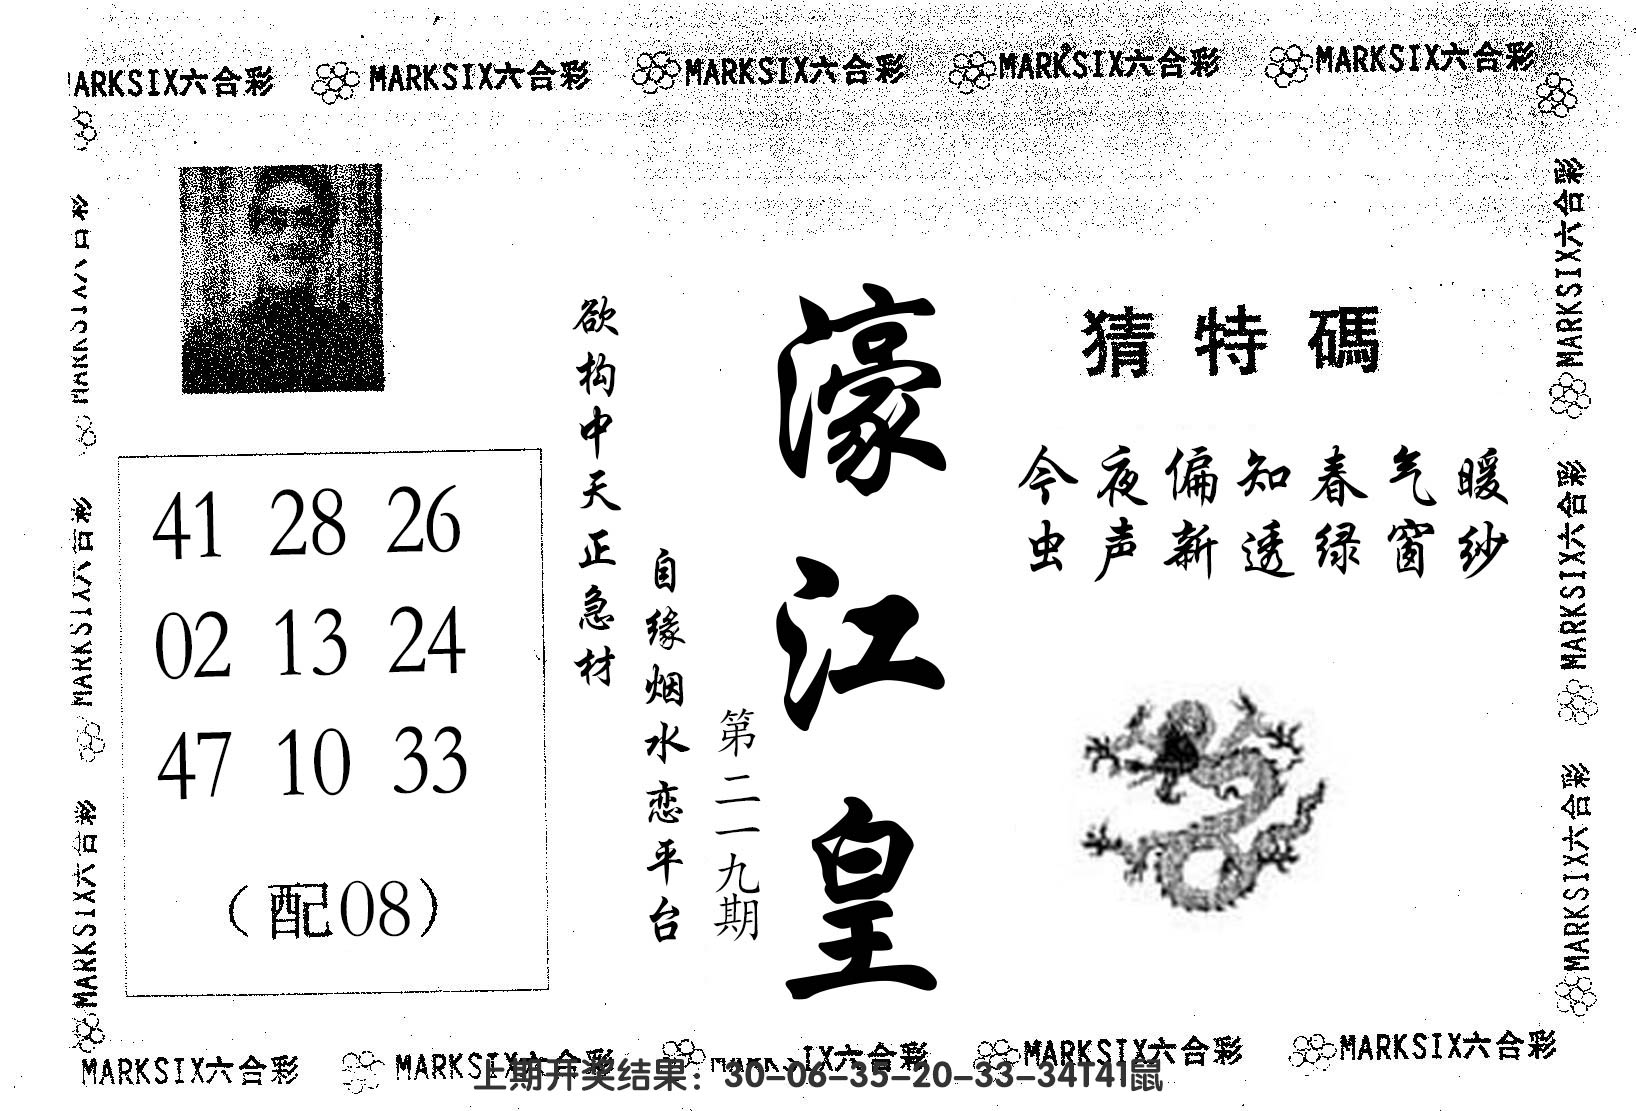 MARKSIX六合彩 MARKSIX六合彩 MARKSIX六合彩 MARKSIX六合彩 MARKSIX六合彩
猜特碼
今夜偏知春气暖
虫声新透绿窗纱
濠江皇
第二一九期
欲构中天正急材
自缘烟水恋平台
41 28 26
02 13 24
47 10 33
（配08）
MARKSIX六合彩
MARKSIX六合彩
MARKSIX六合彩
MARKSIX六合彩
MARKSIX六合彩
MARKSIX六合彩
MARKSIX六合彩 MARKSIX六合彩 MARKSIX六合彩 MARKSIX六合彩 MARKSIX六合彩
上期开奖结果：30-06-35-20-33-34T41鼠